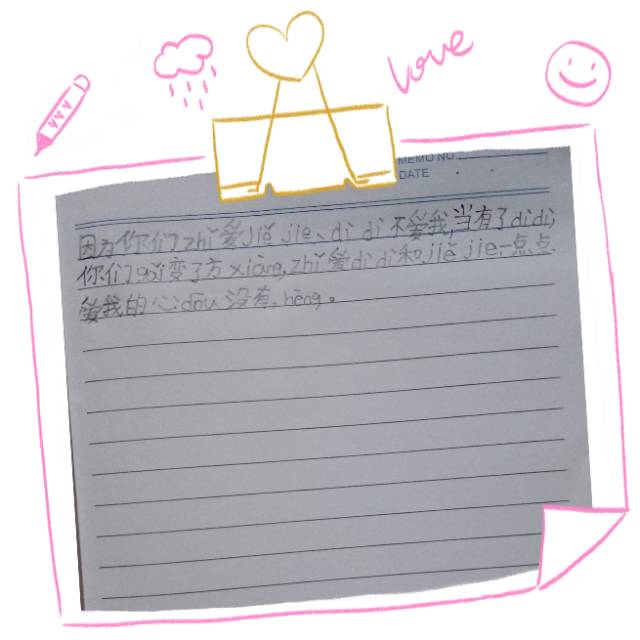 Love
MEMO NO.
DATE
因为你们zhǐ爱jiě jie、dì di不爱我,当有了dìdi,
你们gǎi变了方xiàng,zhǐ爱dìdi和jiě jie,一点点
爱我的心dōu没有,hēng。